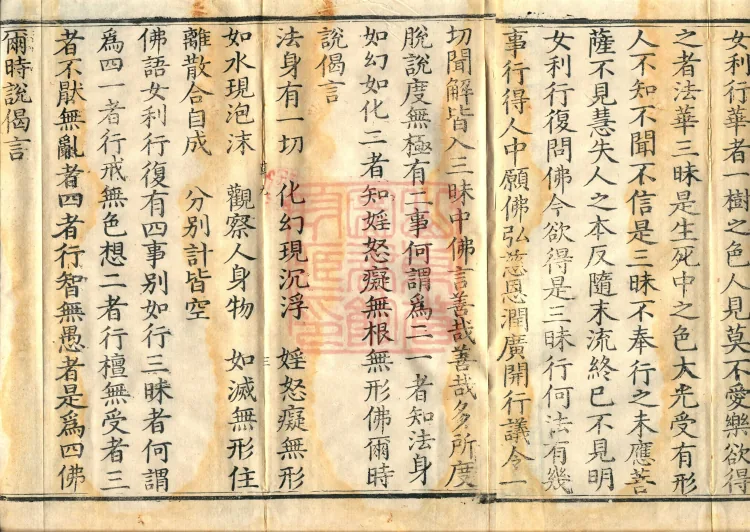 女利行華者一樹之色人見莫不愛樂欲得
之者法華三昧是生死中之色大光受有形
人不知不聞不信是三昧不奉行之未應菩
薩不見慧失人之本反隨末流終已不見明
女利行復問佛今欲得是三昧行何法有幾
事行得人中願佛弘慈恩潤廣開行議令一
切聞解皆入三昧中佛言善哉善哉多所度
脫說度無極有二事何謂為二一者知法身
如幻如化二者知婬怒癡無根無形佛爾時
說偈言
法身有一切　化幻現沉浮　婬怒癡無形
如水現泡沫　觀察人身物　如滅無形住
離散合自成　分別計皆空
佛語女利行復有四事別如行三昧者何謂
為四一者行戒無色想二者行檀無受者三
者不厭無亂者四者行智無愚者是為四佛
爾時說偈言